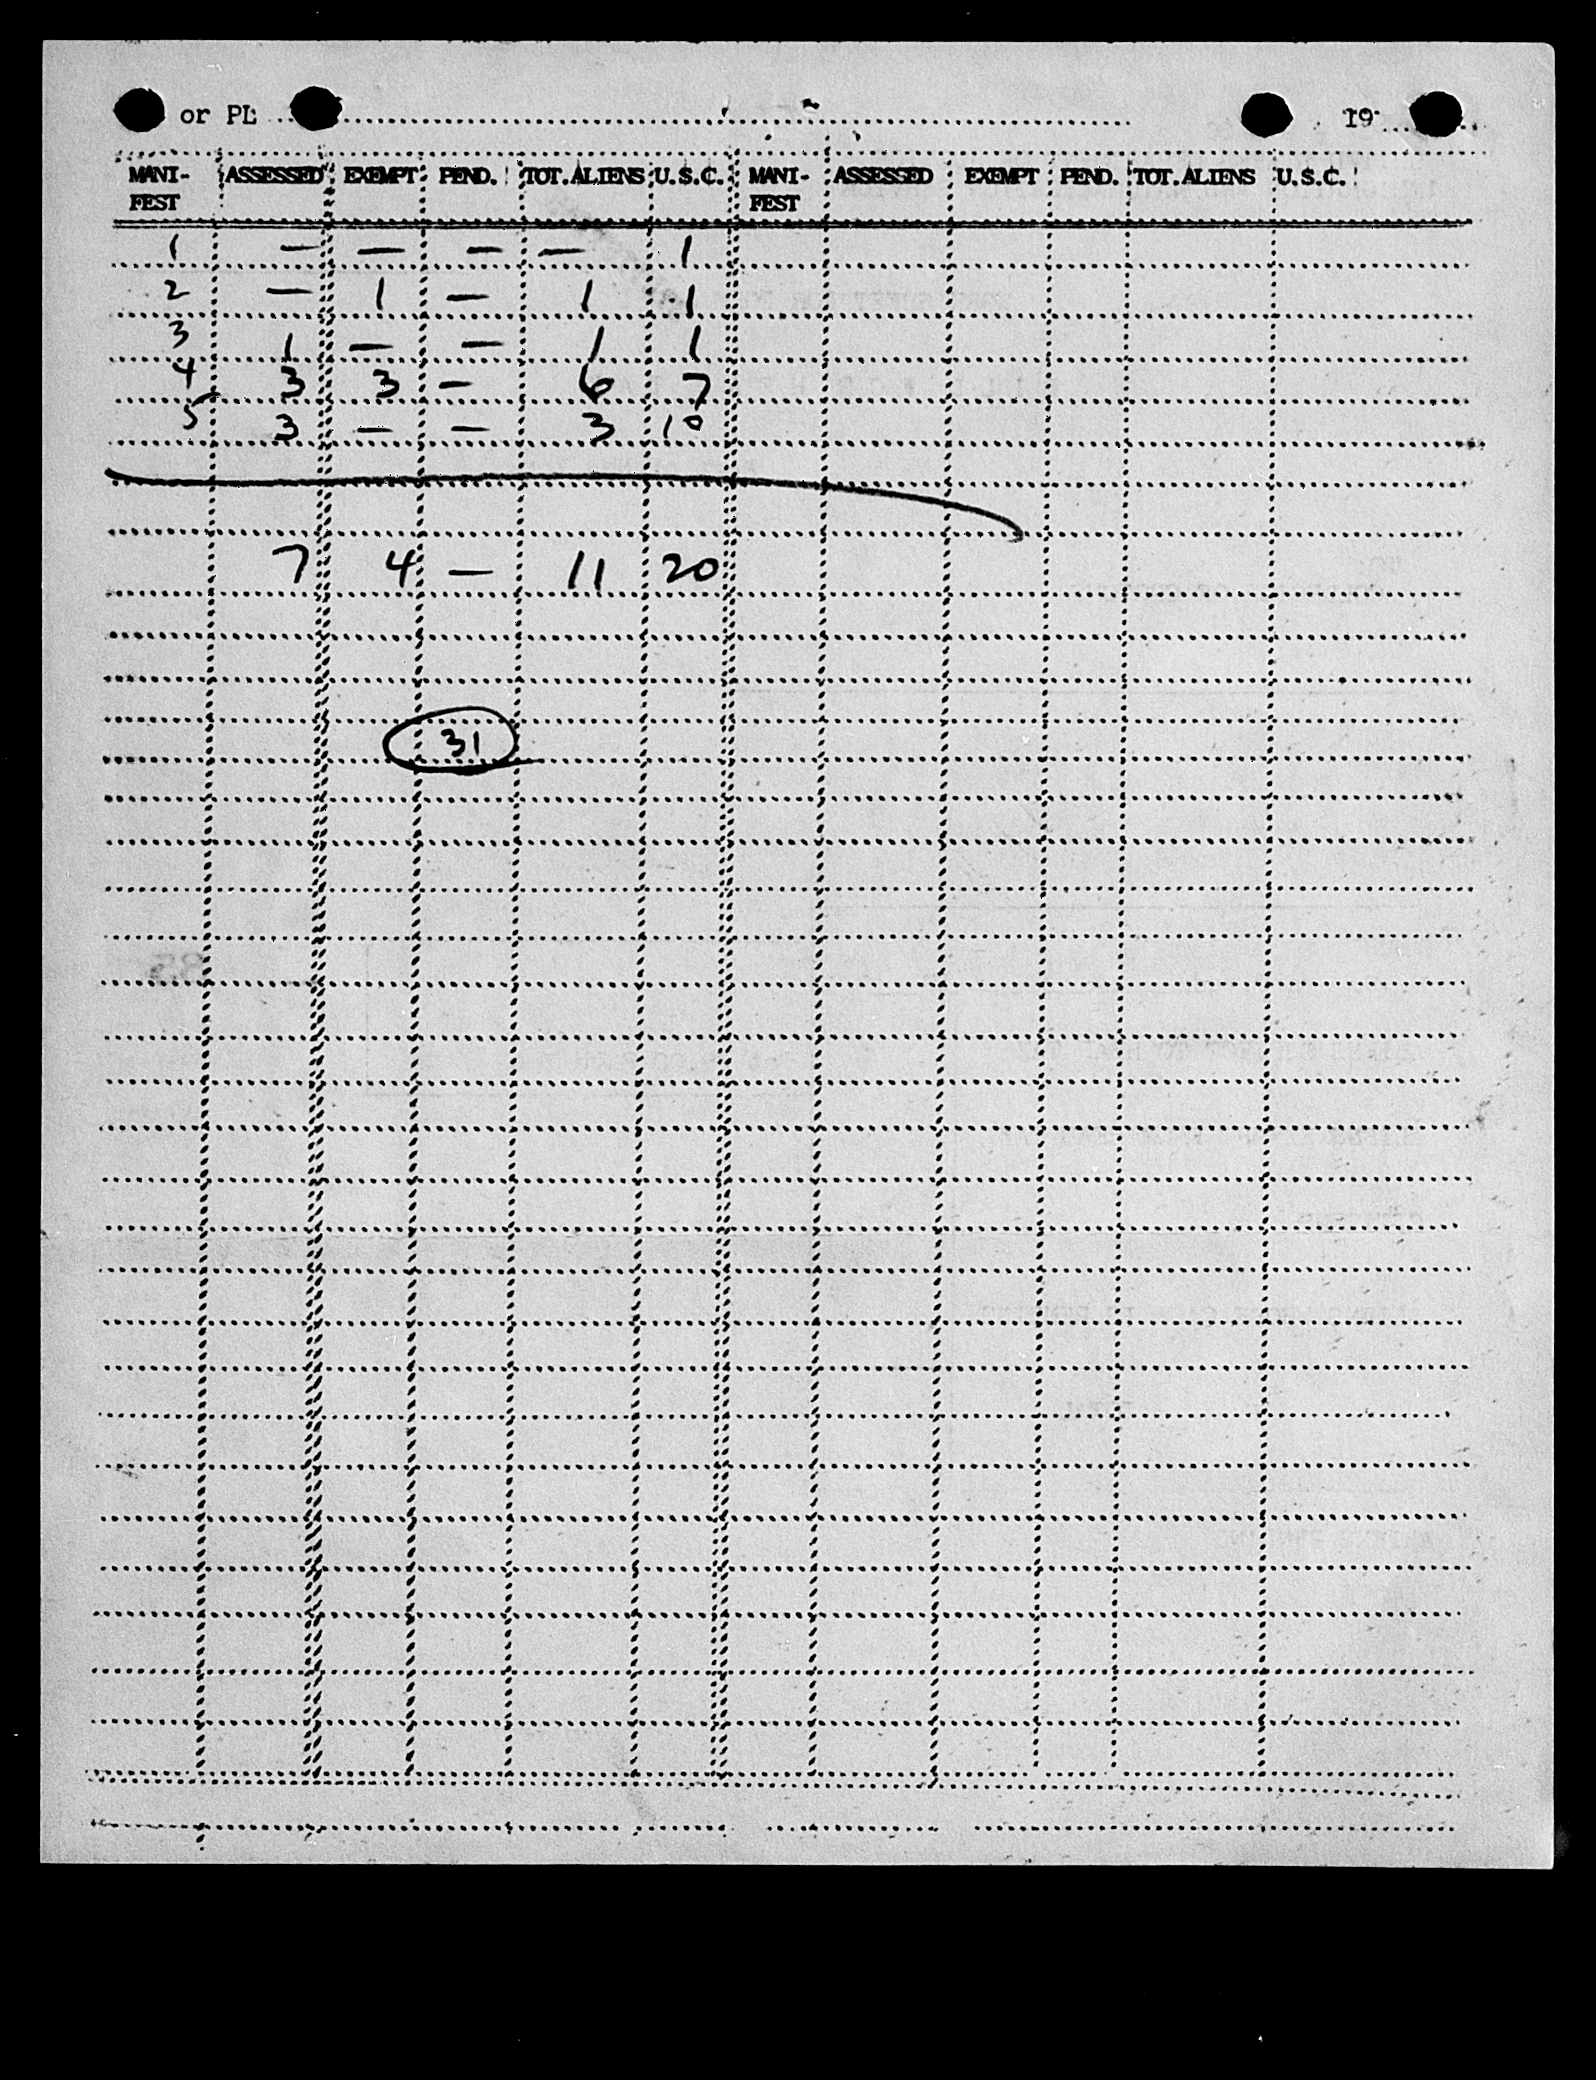 or PL 19
MANI- ASSESSED EXEMPT PEND. TOT. ALIENS U.S.C. MANI- ASSESSED EXEMPT PEND. TOT. ALIENS U.S.C.
FEST FEST
1 — — — — 1
2 — 1 — 1 1
3 1 — — 1 1
4 3 3 — 6 7
5 3 — — 3 10
7 4 — 11 20
31